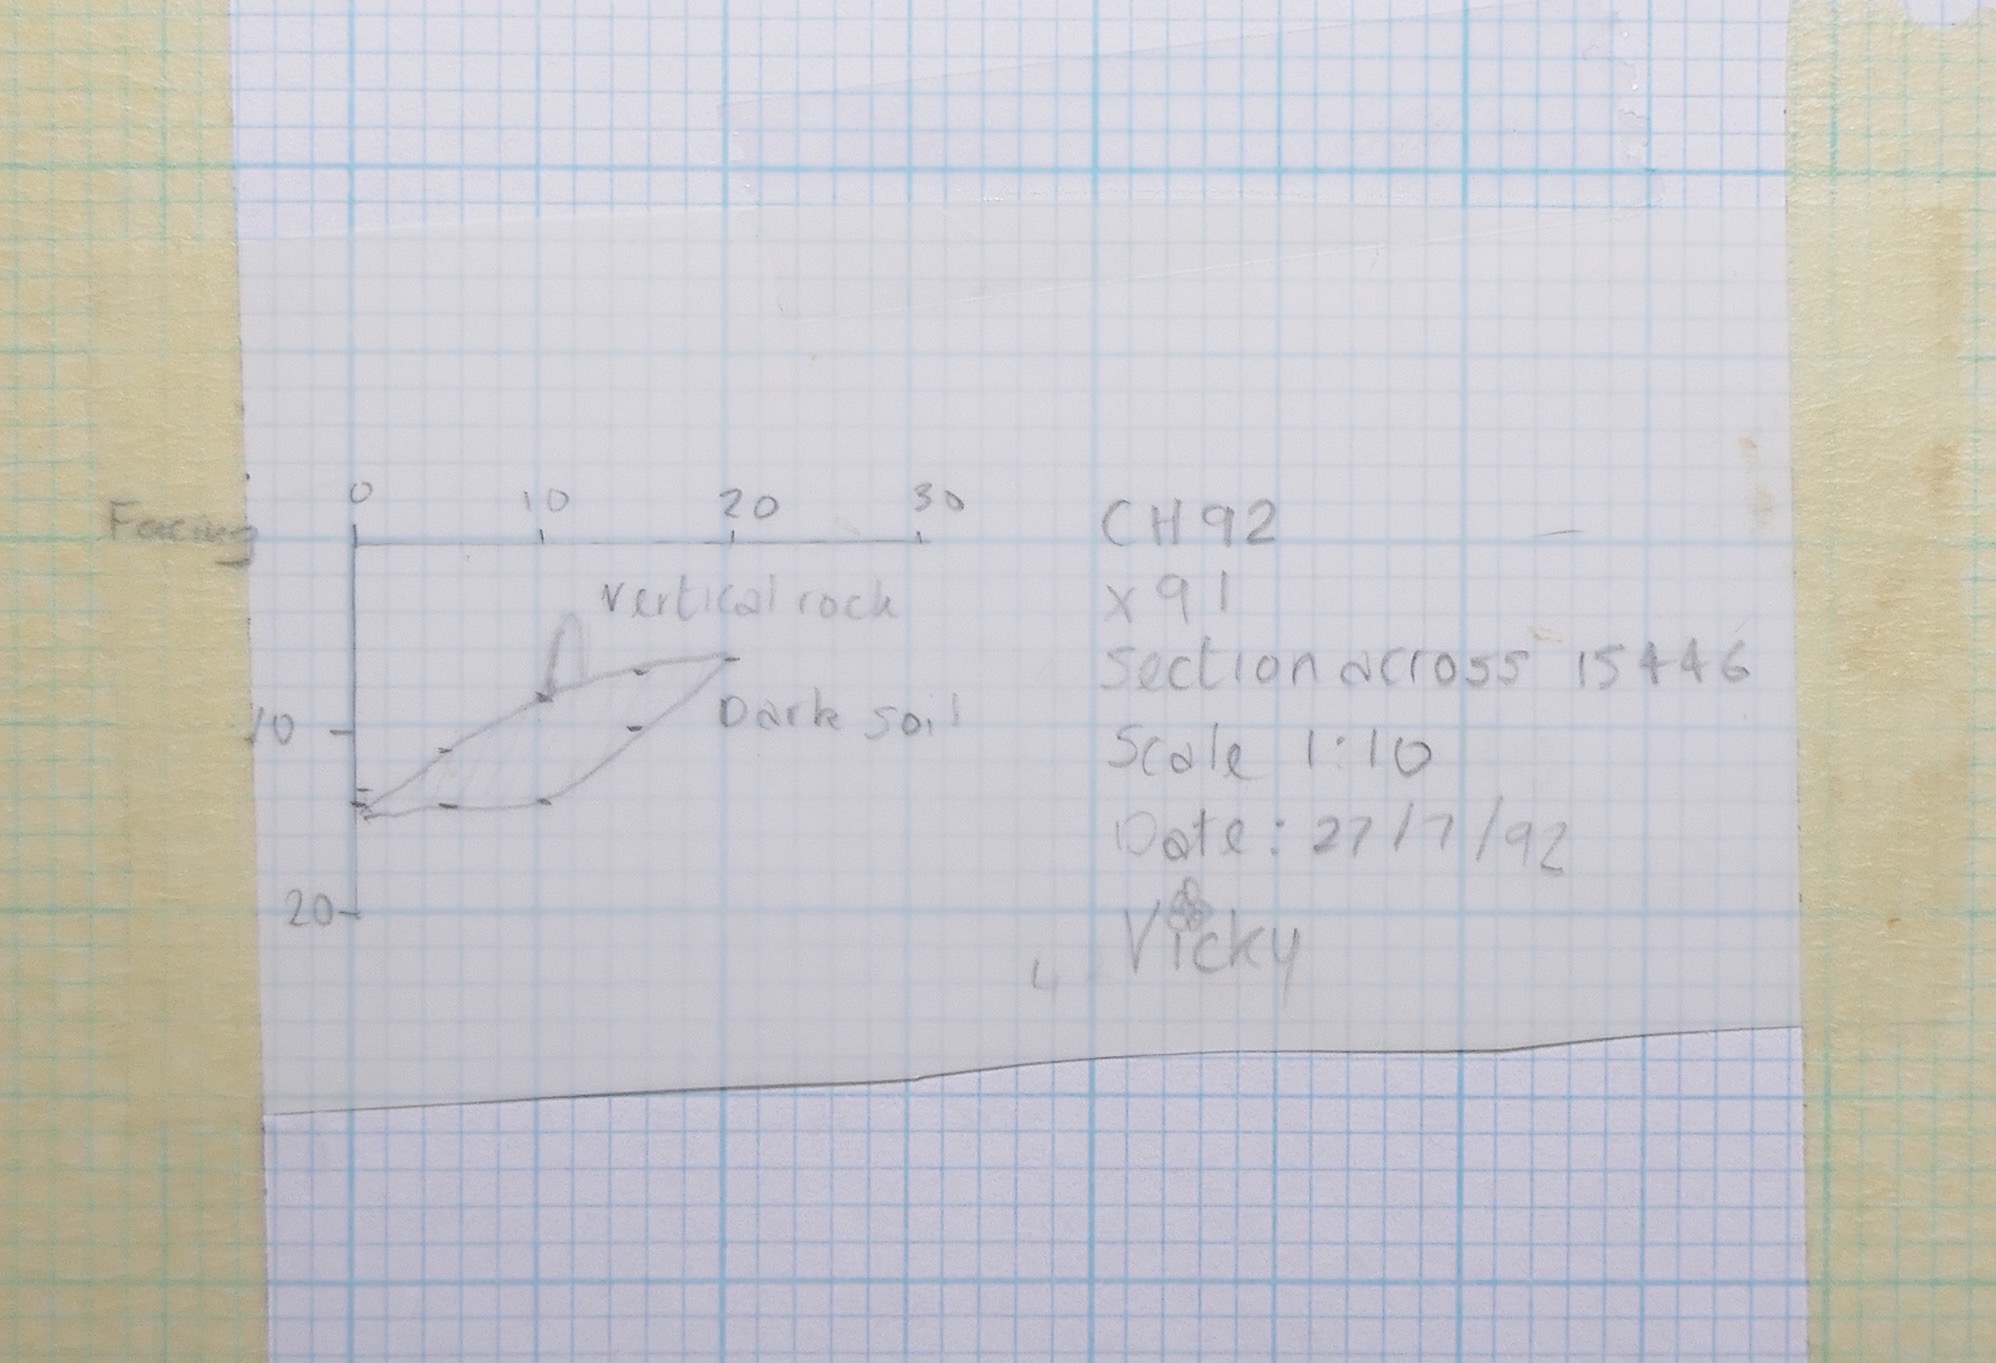 0 10 20 30
Facing
CH92
Vertical rock
x91
Section across 15446
Dark soil
10
Scale 1:10
Date: 27/7/92
20
Vicky